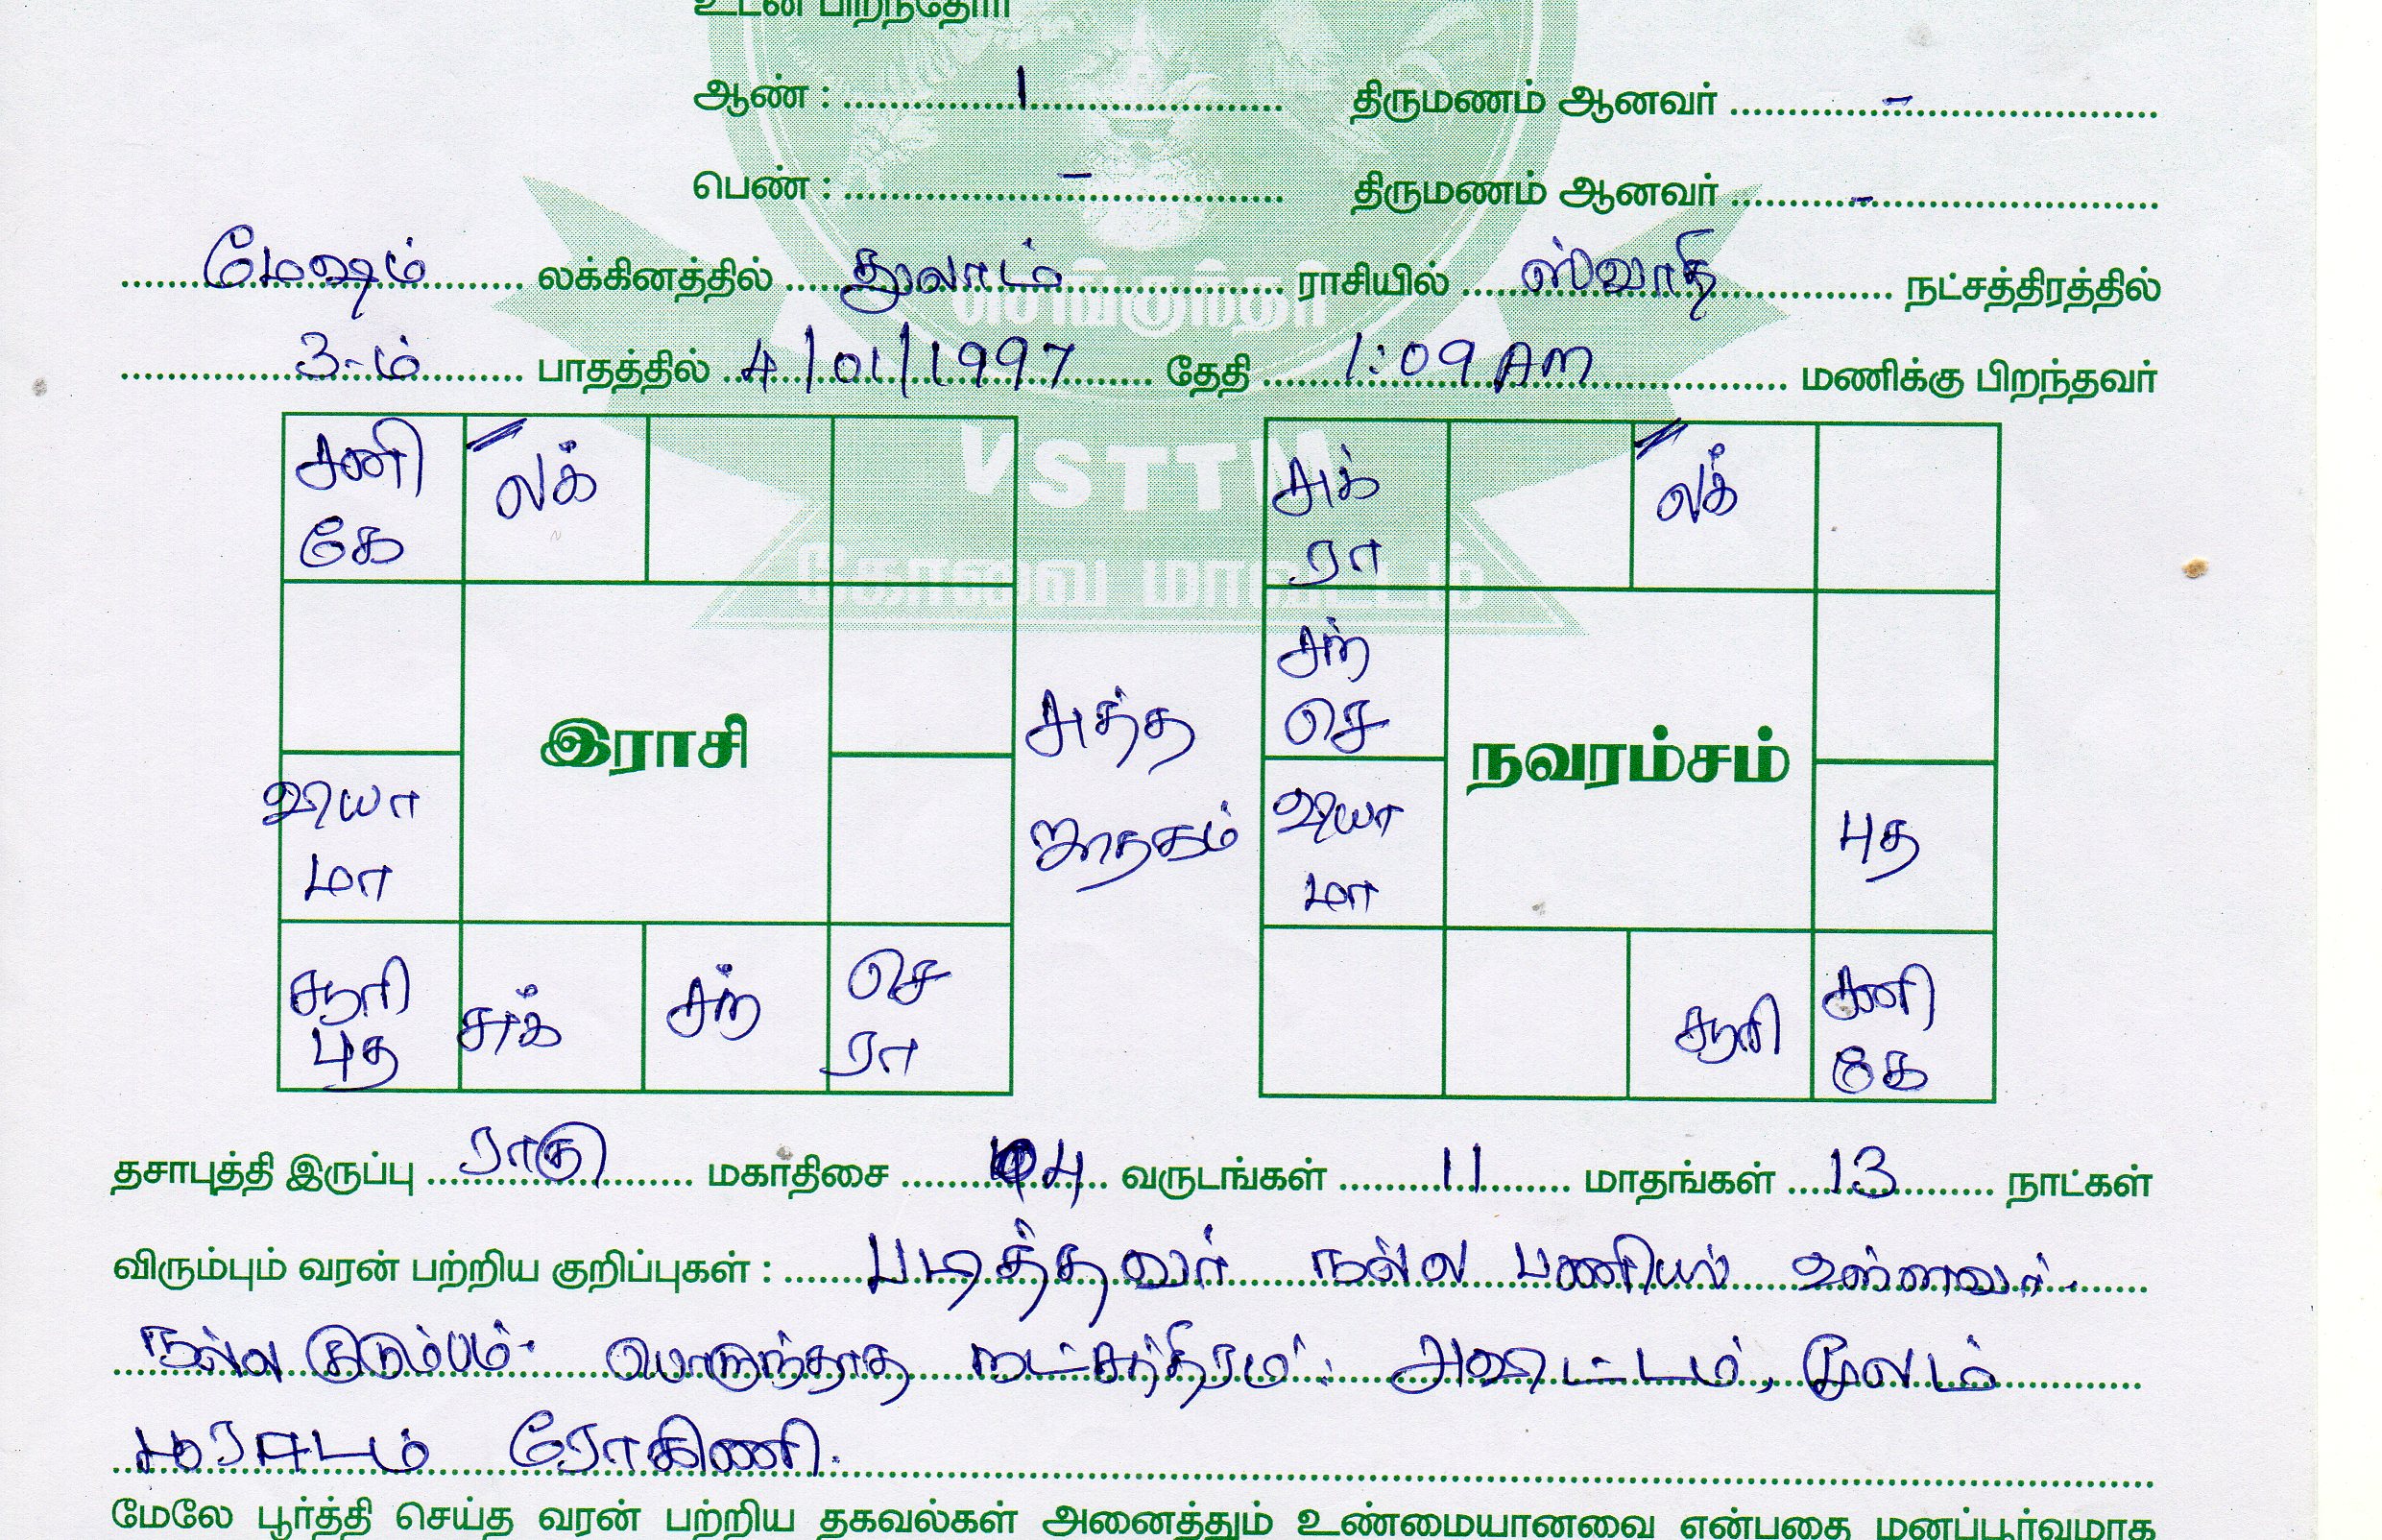 உடன் பிறந்தோர்
ஆண் : 1 திருமணம் ஆனவர் -
பெண் : - திருமணம் ஆனவர் -
மேஷம் லக்கினத்தில் துலாம் ராசியில் ஸ்வாதி நட்சத்திரத்தில்
3-ம் பாதத்தில் 4/01/1997 தேதி 1:09 AM மணிக்கு பிறந்தவர்
செங்குந்தர்
VSTTM
கோவை மாவட்டம்
சனி லக்
கே
இராசி
வியா
மா
சூரி சுக் சந் செ
புத ரா
அசல்
ஜாதகம்
சுக் லக்
ரா
சந்
செ
நவரம்சம்
வியா புத
மா
சூரி சனி
கே
தசாபுத்தி இருப்பு ராகு மகாதிசை 4 வருடங்கள் 11 மாதங்கள் 13 நாட்கள்
விரும்பும் வரன் பற்றிய குறிப்புகள் : படித்தவர் நல்ல பணியில் உள்ளவர்.
நல்ல குடும்பம். பொருந்தாத நட்சத்திரம் : அவிட்டம், மூலம்
பூராடம் ரோகிணி.
மேலே பூர்த்தி செய்த வரன் பற்றிய தகவல்கள் அனைத்தும் உண்மையானவை என்பதை மனப்பூர்வமாக